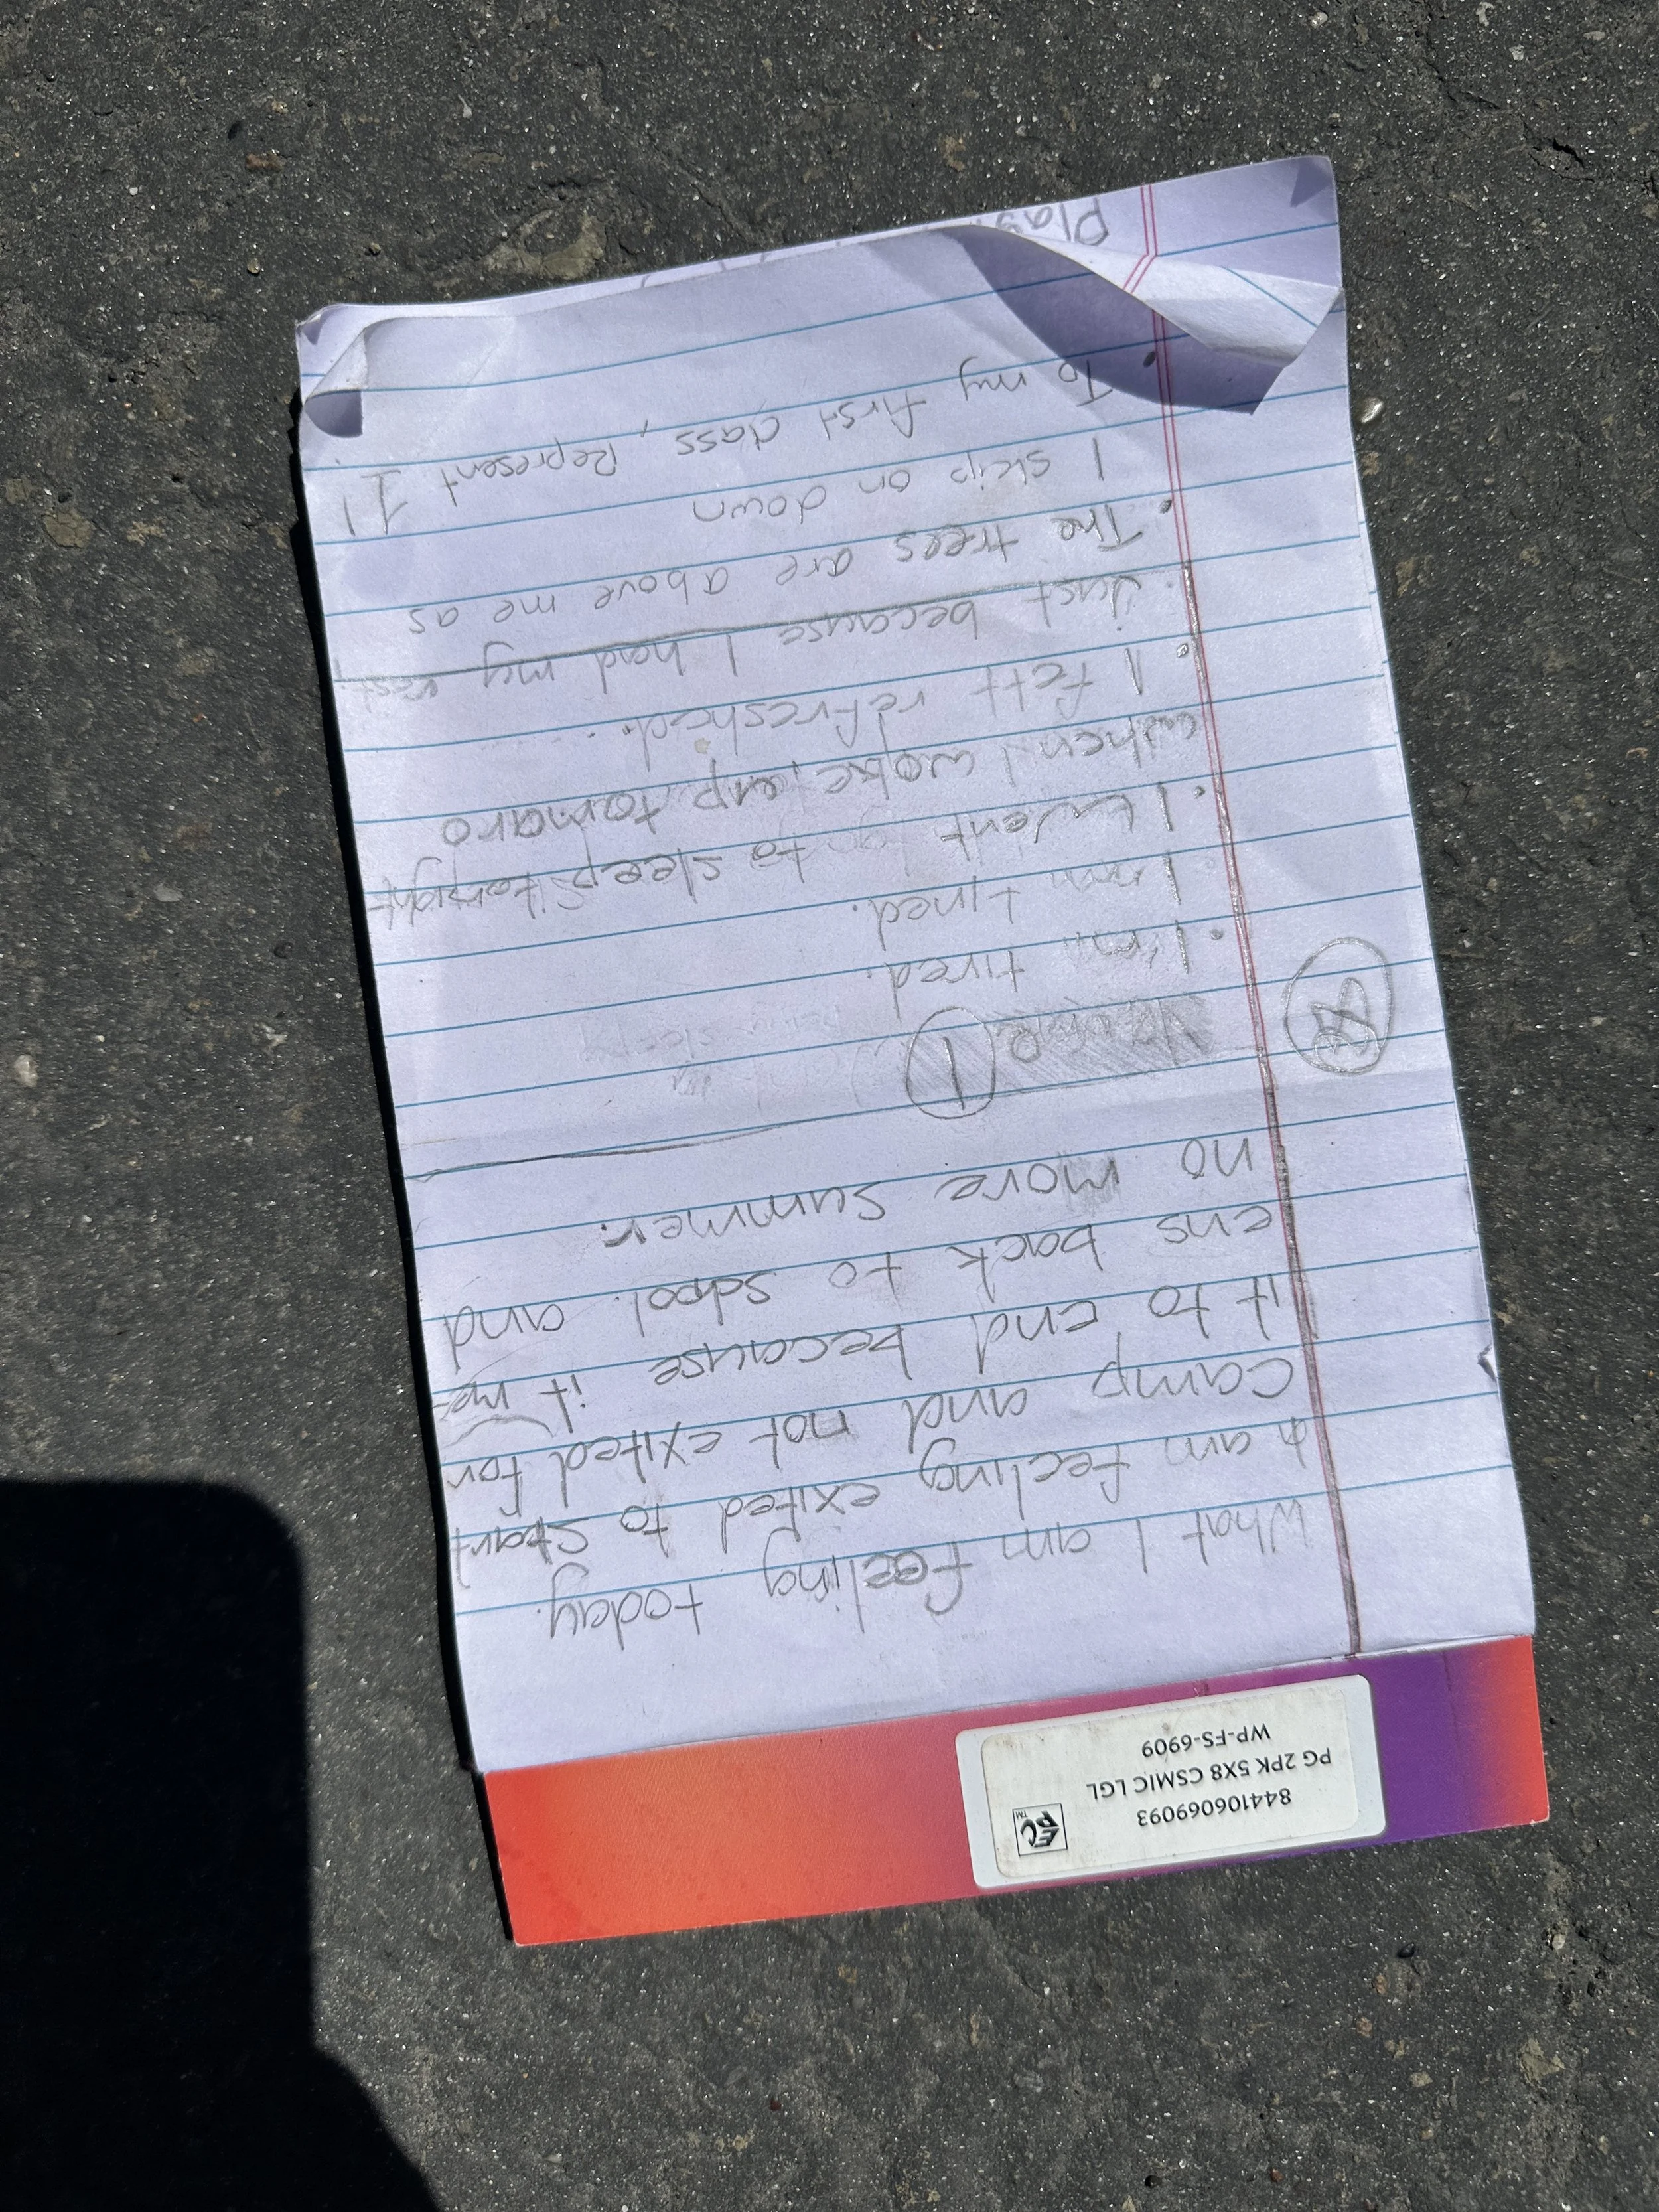 844106069093
PG 2PK 5X8 CSMIC LGL
WP-FS-6909
EC
PC
TM
What I am feeling today.
I am feeling exited to start
camp and not exited for
it to end because it me-
ens back to school. and
no more summer.
1
I'm tired.
I'm tired.
I went to sleep tonight
when I woke up tomaro
I felt refreshed.
Just because I had my rest
The trees are above me as
I skip on down
To my first class, Represent 1!
Play